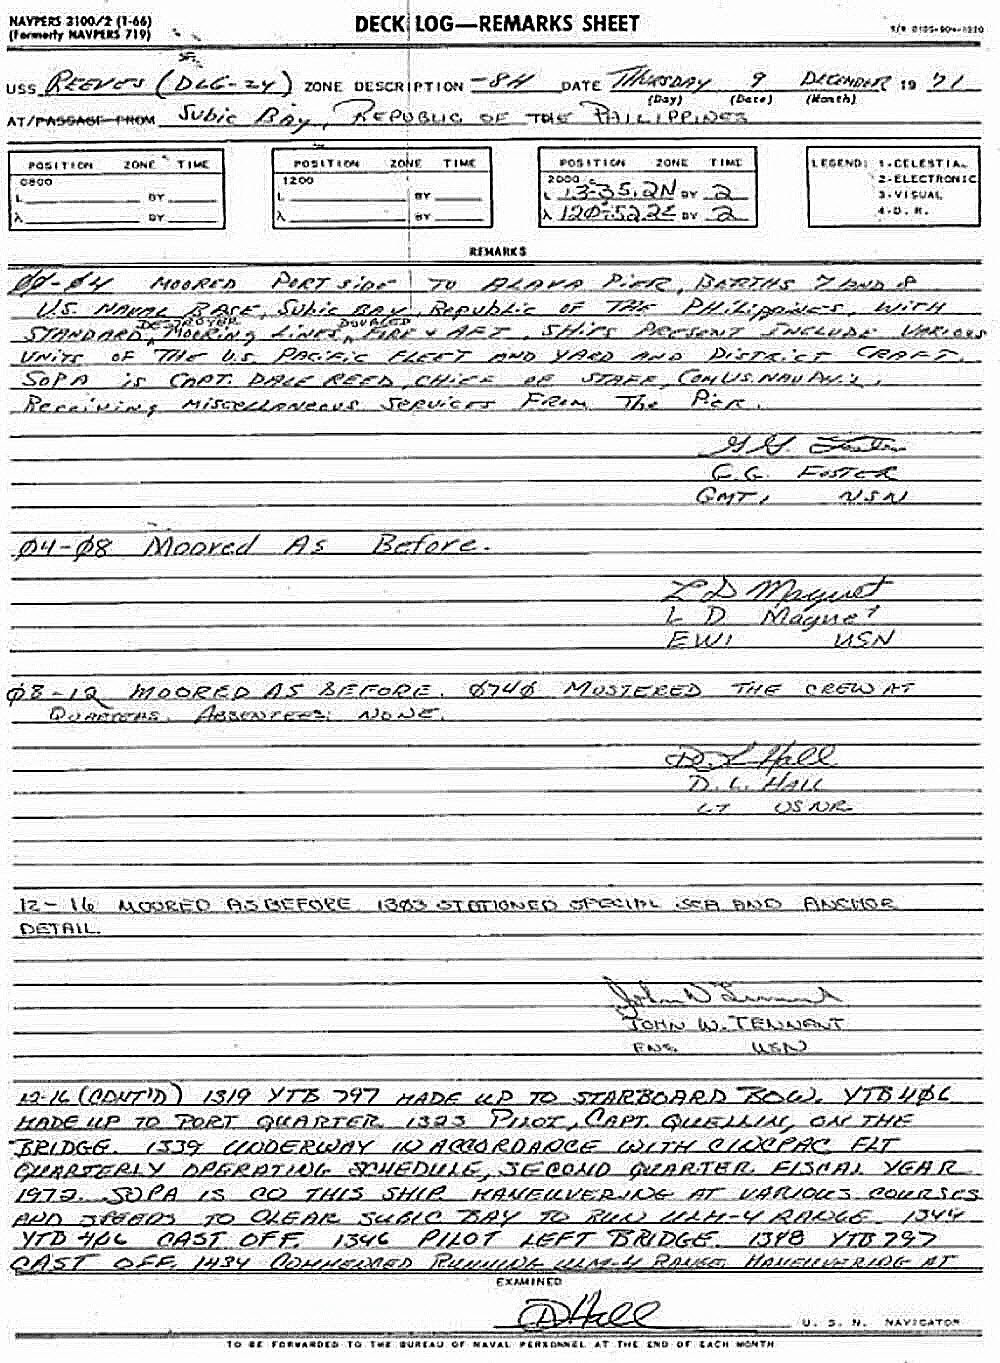 NAVPERS 3100/2 (1-66)
(Formerly NAVPERS 719)
DECK LOG—REMARKS SHEET
S/N 0105-504-1220
USS REEVES (DLG-24) ZONE DESCRIPTION -8H DATE THURSDAY 9 DECEMBER 19 71
(Day) (Date) (Month)
AT/PASSAGE FROM SUBIC BAY, REPUBLIC OF THE PHILIPPINES
POSITION ZONE TIME
0800
L BY
λ BY
POSITION ZONE TIME
1200
L BY
λ BY
POSITION ZONE TIME
2000
L 13-35.2N BY 2
λ 120-52.2E BY 2
LEGEND: 1-CELESTIAL
2-ELECTRONIC
3-VISUAL
4-D. R.
REMARKS
ØØ-Ø4 MOORED PORT SIDE TO ALAVA PIER, BERTHS 7 AND 8
U.S. NAVAL BASE, SUBIC BAY, REPUBLIC OF THE PHILIPPINES, WITH
STANDARD DESTROYER MOORING LINES DOUBLED FORE & AFT. SHIPS PRESENT INCLUDE VARIOUS
UNITS OF THE U.S. PACIFIC FLEET AND YARD AND DISTRICT CRAFT.
SOPA IS CAPT. DALE REED, CHIEF OF STAFF,
RECEIVING MISCELLANEOUS SERVICES FROM THE PIER.
G. G. FOSTER
GMT1 USN
Ø4-Ø8 Moored As Before.
L D Magnet
L D Magnet
EW1 USN
Ø8-12 MOORED AS BEFORE. Ø74Ø MUSTERED THE CREW AT
QUARTERS. ABSENTEES: NONE.
D. L. Hall
D. L. HALL
LT USNR
12-16 MOORED AS BEFORE 1303 STATIONED SPECIAL SEA AND ANCHOR
DETAIL.
John W Tennant
JOHN W. TENNANT
ENS USN
12-16 (CONT'D) 1319 YTB 797 MADE UP TO STARBOARD BOW. YTB 406
MADE UP TO PORT QUARTER. 1323 PILOT, CAPT. QUELLIN, ON THE
BRIDGE. 1339 UNDERWAY IN ACCORDANCE WITH CINCPAC FLT
QUARTERLY OPERATING SCHEDULE, SECOND QUARTER FISCAL YEAR
1972. SOPA IS CO THIS SHIP. MANEUVERING AT VARIOUS COURSES
AND SPEEDS TO CLEAR SUBIC BAY TO RUN WLM-4 RANGE. 1344
CAST OFF. 1346 PILOT LEFT BRIDGE. 1348 YTB 797
CAST OFF. 1434 COMMENCED RUNNING WLM-4 RANGE. MANEUVERING AT
EXAMINED
D Hall
U. S. N. NAVIGATOR
TO BE FORWARDED TO THE BUREAU OF NAVAL PERSONNEL AT THE END OF EACH MONTH